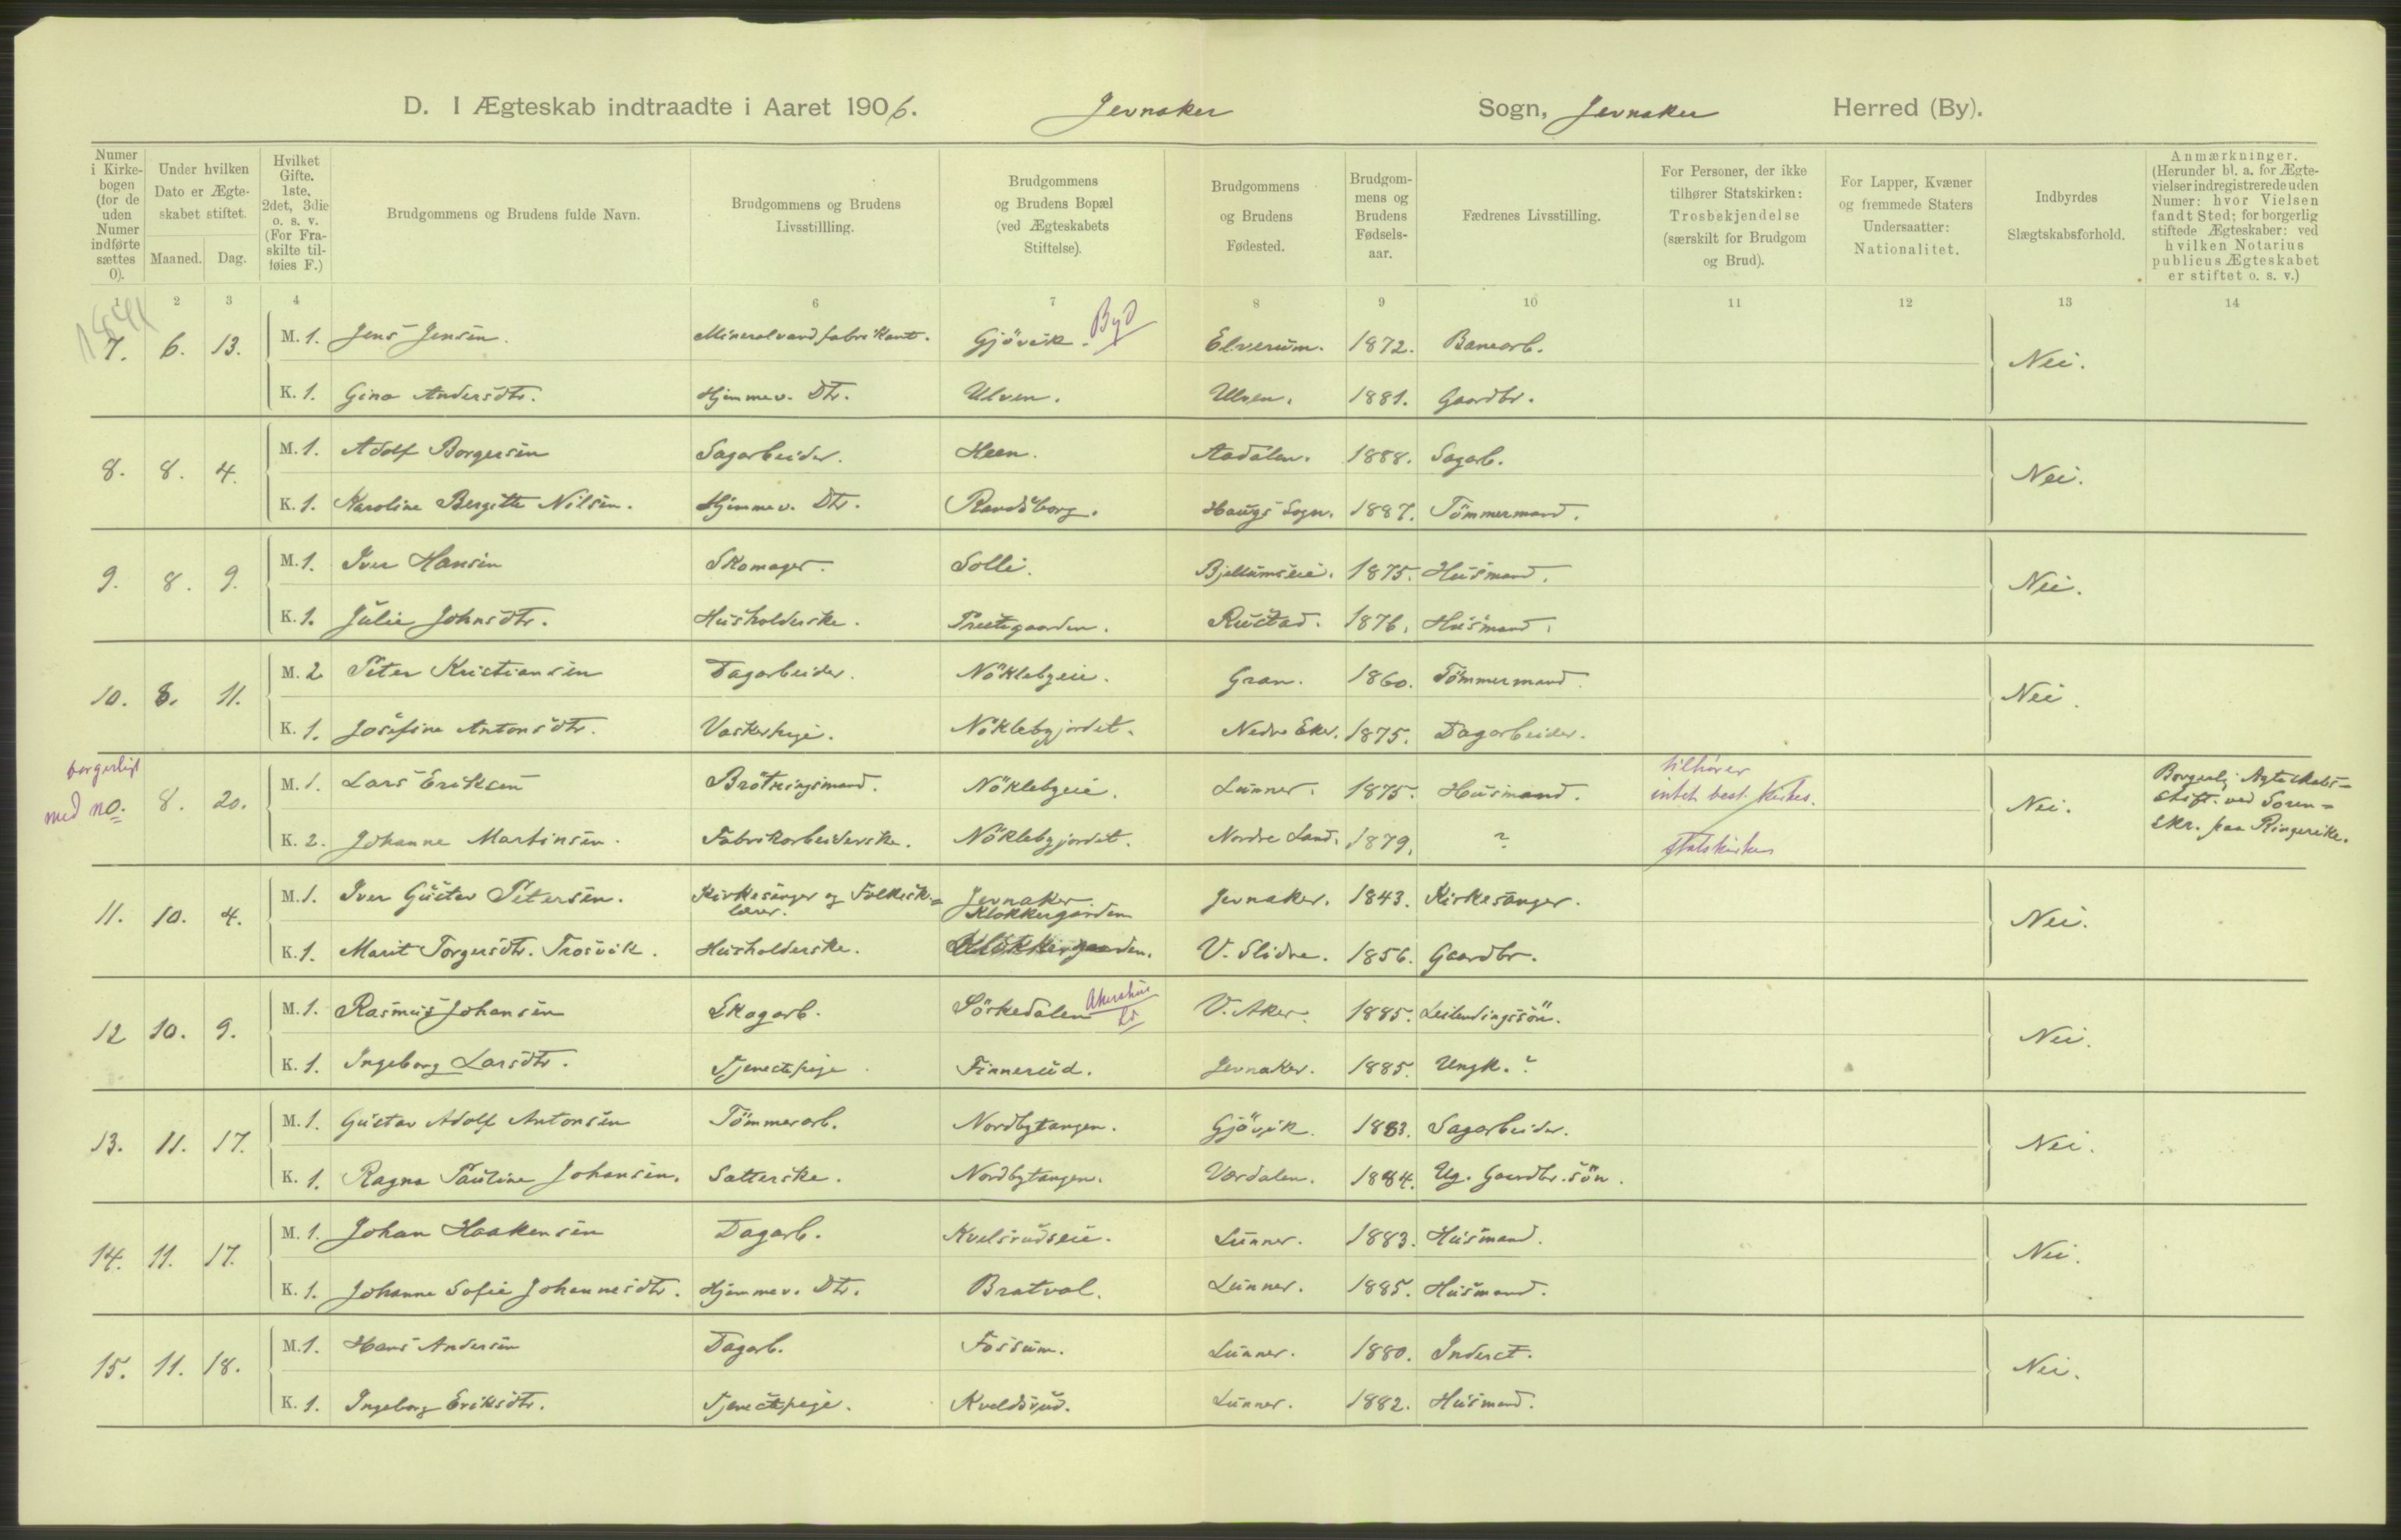 D. I Ægteskab indtraadte i Aaret 1906. Jevnaker Sogn, Jevnaker Herred (By).
Numer i Kirkebogen (for de uden Numer indførte sættes 0).
Under hvilken Dato er Ægteskabet stiftet.
Maaned. Dag.
Hvilket Gifte. 1ste, 2det, 3die o. s. v. (For Fraskilte tilføies F.)
Brudgommens og Brudens fulde Navn.
Brudgommens og Brudens Livsstillling.
Brudgommens og Brudens Bopæl (ved Ægteskabets Stiftelse).
Brudgommens og Brudens Fødested.
Brudgommens og Brudens Fødselsaar.
Fædrenes Livsstilling.
For Personer, der ikke tilhører Statskirken: Trosbekjendelse (særskilt for Brudgom og Brud).
For Lapper, Kvæner og fremmede Staters Undersaatter: Nationalitet.
Indbyrdes Slægtskabsforhold.
Anmærkninger. (Herunder bl. a. for Ægtevielser indregistrerede uden Numer: hvor Vielsen fandt Sted; for borgerlig stiftede Ægteskaber: ved hvilken Notarius publicus Ægteskabet er stiftet o. s. v.)
1 2 3 4 6 7 8 9 10 11 12 13 14
7. 6. 13. M. 1. Jens Jensen. Mineralvandfabrikant. Gjövik. Byd Elverum. 1872. Banearb. Nei.
K. 1. Gina Andersdtr. Hjemmev. Dtr. Ulven. Ulven. 1881. Gaardbr.
8. 8. 4. M. 1. Adolf Borgersen Sagarbeider. Heen. Aadalen. 1888. Sagarb. Nei.
K. 1. Karoline Bergitte Nilsen. Hjemmev. Dtr. Randsborg. Haugs Sogn. 1887. Tömmermand.
9. 8. 9. M. 1. Iver Hansen Skomager. Solli. Bjellumseie. 1875. Husmand. Nei.
K. 1. Julie Johnsdtr. Husholderske. Prestegaarden. Rustad. 1876. Husmand.
10. 8. 11. M. 2 Peter Kristiansen Dagarbeider. Nöklebyeie. Gran. 1860. Tömmermand. Nei.
K. 1. Josefine Antonsdtr. Vaskerpige. Nöklebyjordet. Nedre Eker. 1875. Dagarbeider.
borgerligt
med no. 8. 20. M. 1. Lars Eriksen Brötningsmand. Nöklebyeie. Lunner. 1875. Husmand. tilhører intet best. Kirkes. Nei. Borgerlig Ægteskabsstift. ved Sorenskr. paa Ringerike.
K. 2. Johanne Martinsen. Fabrikarbeiderske. Nöklebyjordet. Nordre Land. 1879. ? Statskirken
11. 10. 4. M. 1. Iver Gustav Petersen. Kirkesanger og Folkesk.lærer. Jevnaker Klokkergarden Jevnaker. 1843. Kirkesanger. Nei.
K. 1. Marit Torgersdtr. Trosvik. Husholderske. Klokkergaarden. V. Slidre. 1856. Gaardbr.
12 10. 9. M. 1. Rasmus Johansen Skogarb. Sörkedalen Akershus V. Aker. 1885. Leilendingssön. Nei.
K. 1. Ingeborg Larsdtr. Tjenestepige Finnerud. Jevnaker. 1885. Ungk. ?
13. 11. 17. M. 1. Gustav Adolf Antonsen Tömmerarb. Nordbytangen. Gjövik. 1883. Sagarbeider. Nei.
K. 1. Ragna Pauline Johansen. Satterske. Nordbytangen. Værdalen. 1884. Ug. Gaardbr.sön.
14. 11. 17. M. 1. Johan Haakensen Dagarb. Kvelsrudseie. Lunner. 1883. Husmand. Nei.
K. 1. Johanne Sofie Johannesdtr. Hjemmev. Dtr. Bratval. Lunner. 1885. Husmand.
15. 11. 18. M. 1. Hans Andersen Dagarb. Fossum. Lunner. 1880. Inderst. Nei.
K. 1. Ingeborg Eriksdtr. Tjenestepige. Kveldsrud. Lunner. 1882. Husmand.